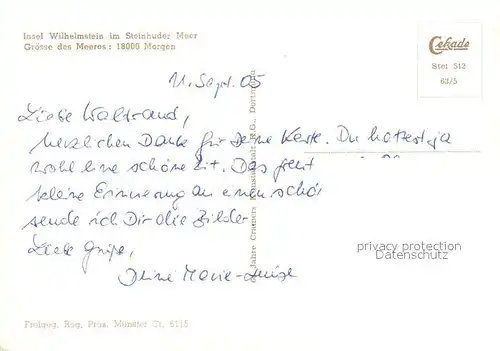 Insel Wilhelmstein im Steinhuder Meer
Grösse des Meeres: 18000 Morgen
Cekade
Stei 512
63/5
11. Sept. 05
Liebe Waltraud,
herzlichen Dank für Deine Karte. Du hattest ja
wohl eine schöne Zeit. Das
kleine Erinnerung an einen schö
sende ich Dir die Bilder
Liebe Grüße,
Deine Marie-Luise
Jahre Cramers Kunstanstalt K.G., Dortmund
privacy protection
Datenschutz
Freigeg. Reg. Präs. Münster Cr. 6115